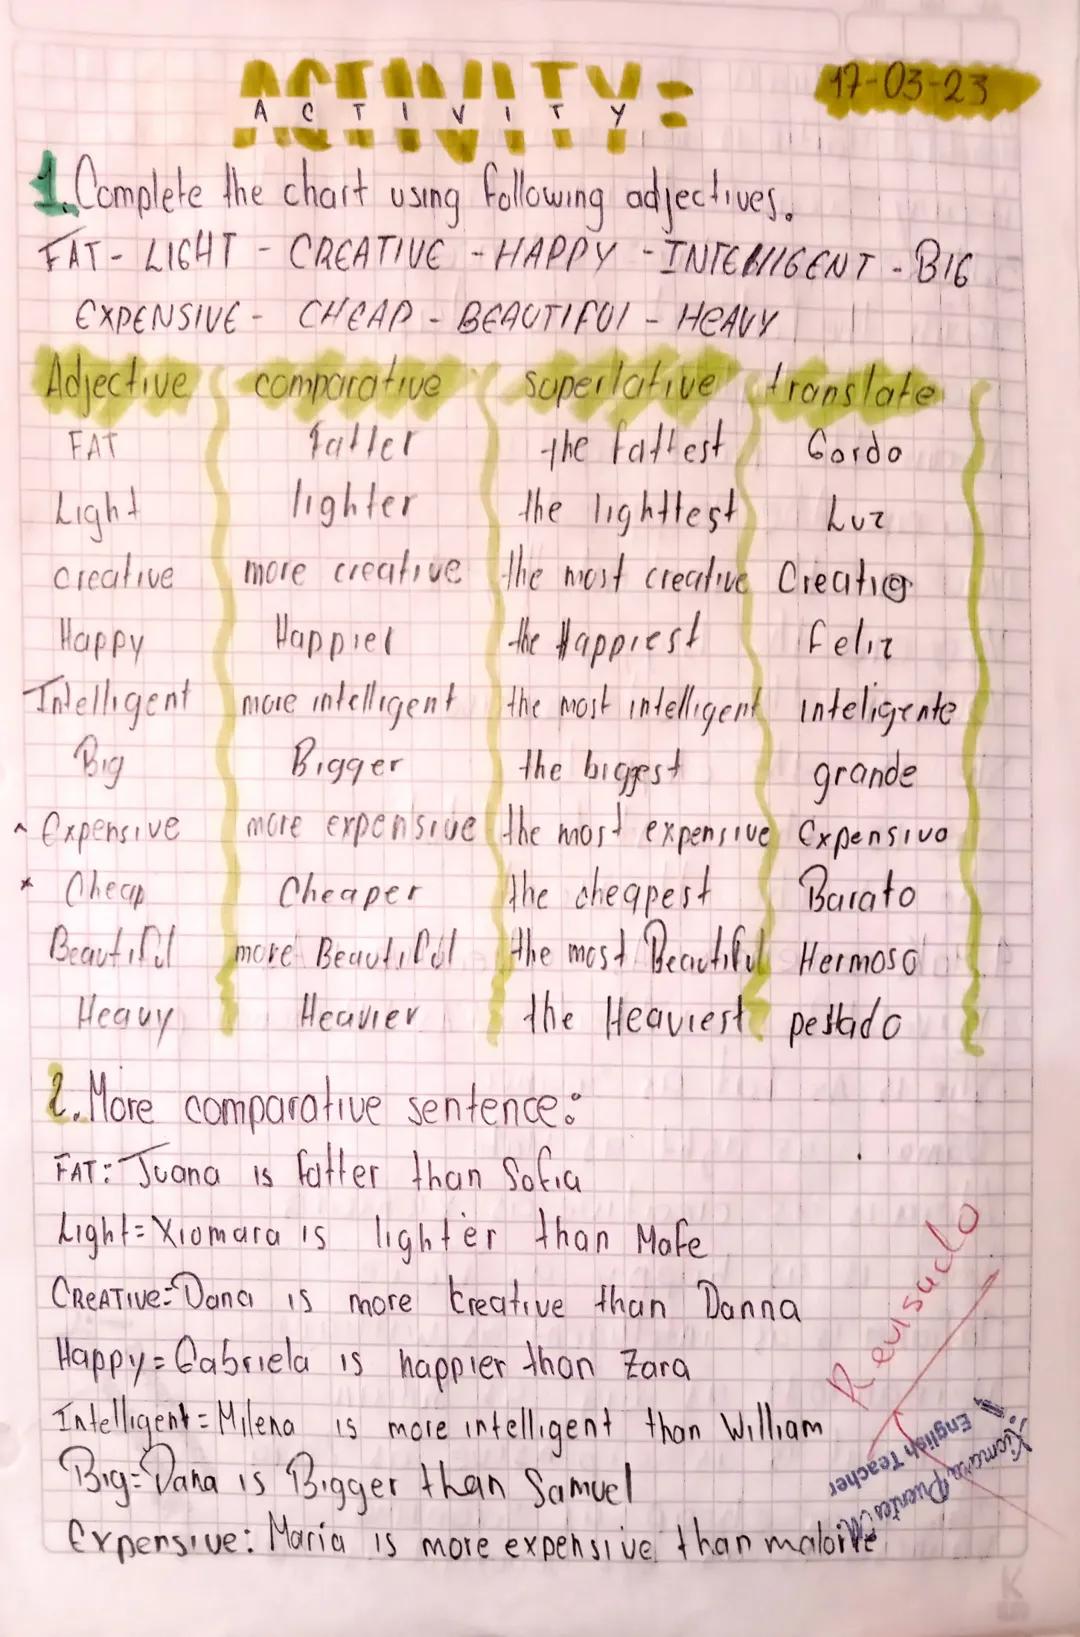 ACTIVITY:
A C T I V I T Y
17-03-23
1. Complete the chart using following adjectives.
FAT - LIGHT - CREATIVE - HAPPY - INTELLIGENT - BIG
EXPENSIVE - CHEAP - BEAUTIFUL - HEAVY
Adjective comparative superlative translate
FAT fatter the fattest Gordo
Light lighter the lighttest Luz
creative more creative the most creative Creativo
Happy Happier the Happiest feliz
Intelligent more intelligent the most intelligent inteligente
Big Bigger the biggest grande
Expensive more expensive the most expensive Expensivo
* Cheap Cheaper the cheapest Barato
Beautiful more Beautiful the most Beautiful Hermoso
Heavy Heavier the Heaviest pesado
2. More comparative sentence:
FAT: Juana is fatter than Sofia
Light = Xiomara is lighter than Mafe
CREATIVE = Dana is more creative than Danna
Happy = Gabriela is happier than Zara
Intelligent = Milena is more intelligent than William
Big = Dana is Bigger than Samuel
Expensive: Maria is more expensive than
Revisado
Xiomara Puentes
English Teacher
K